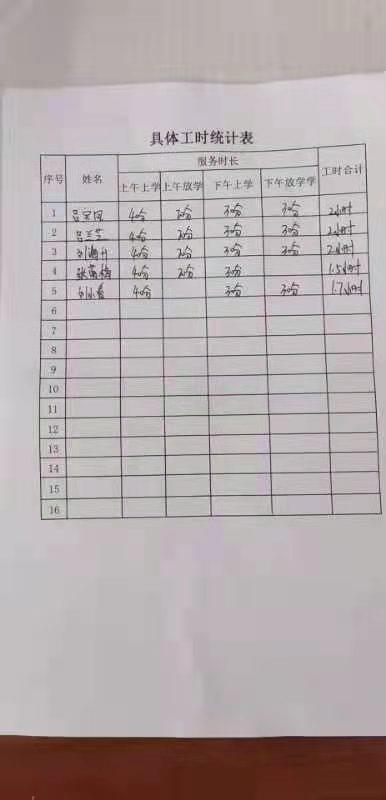 具体工时统计表
序号 姓名 服务时长 工时合计
上午上学 上午放学 下午上学 下午放学学
1 40分 20分 30分 30分 2小时
2 吕兰芝 40分 20分 30分 30分 2小时
3 40分 20分 30分 30分 2小时
4 40分 20分 30分 1.5小时
5 40分 30分 30分 1.7小时
6
7
8
9
10
11
12
13
14
15
16